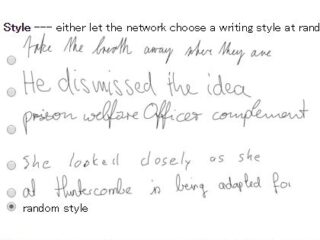 Style --- either let the network choose a writing style at rand
take the breath away when they are
He dismissed the idea
prison welfare Officer complement
She looked closely as she
at Huntercombe is being adapted for
random style